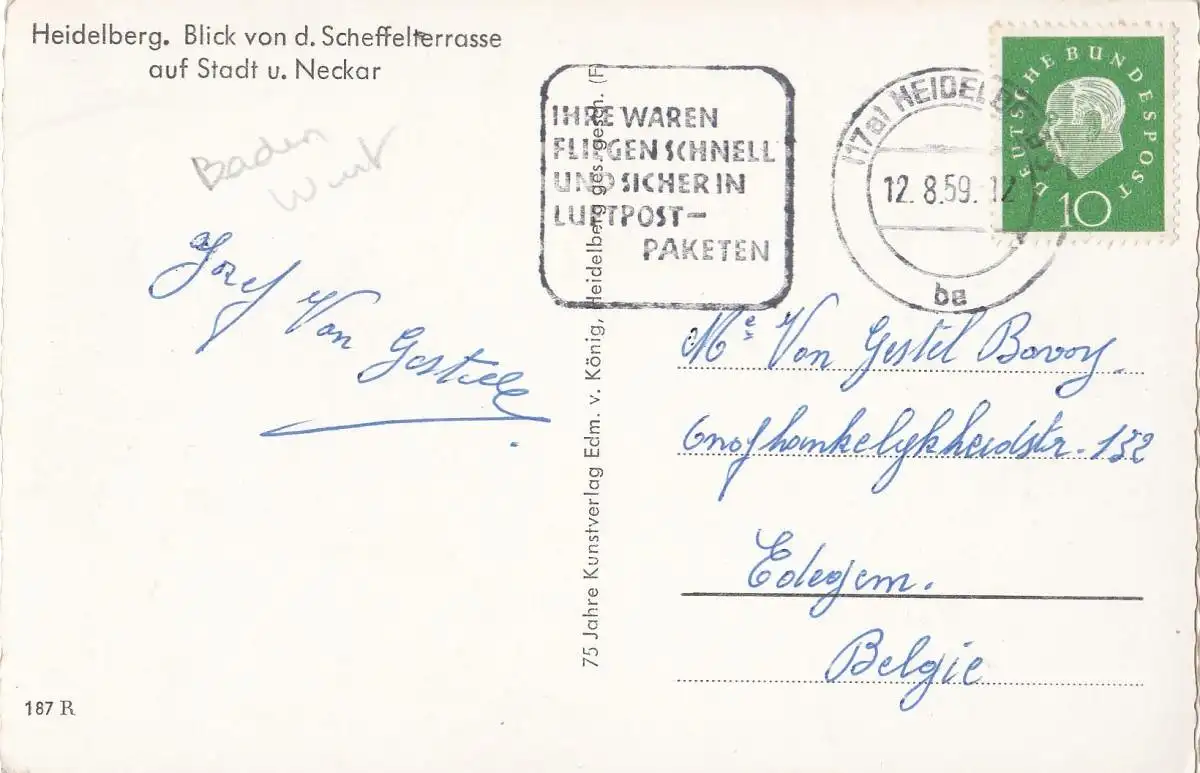 Heidelberg. Blick von d. Scheffelterrasse
auf Stadt u. Neckar
Baden
Wurt
Jozef Van Gestel
IHRE WAREN
FLIEGEN SCHNELL
UND SICHER IN
LUFTPOST-
PAKETEN
(17a) HEIDELBERG
12.8.59. 12
ba
DEUTSCHE BUNDESPOST
10
Me Van Gestel Bavoy.
Onafhankelykheidstr. 132
Edegem.
Belgie
75 Jahre Kunstverlag Edm. v. König, Heidelberg ges. gesch. (F)
187 R